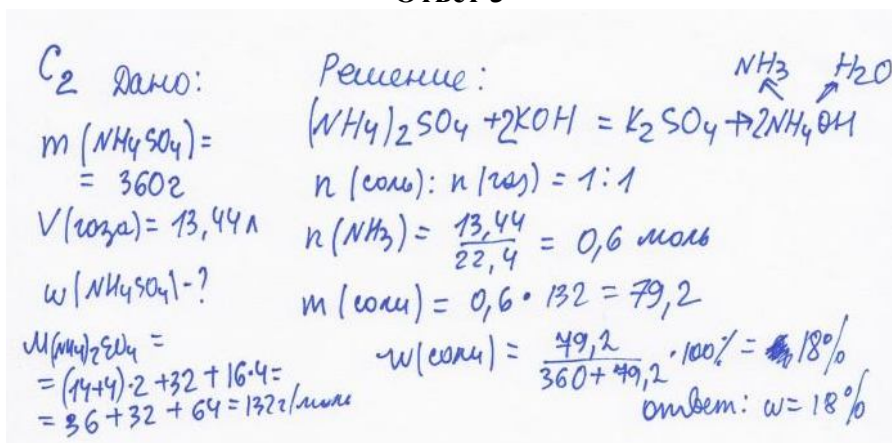 C2 Дано:
m(NH4SO4)=
= 360г
V(газа)= 13,44л
w(NH4SO4)-?
M(NH4)2SO4 =
=(14+4)·2+32+16·4=
= 36+32+64=132г/моль
Решение:
NH3 H2O
(NH4)2SO4 +2KOH = K2SO4 +2NH4OH
n (соль): n(газ) = 1:1
n(NH3) = 13,44/22,4 = 0,6 моль
m (соли) = 0,6 · 132 = 79,2
w(соли) = 79,2/360+79,2 ·100% = 18%
ответ: w= 18%